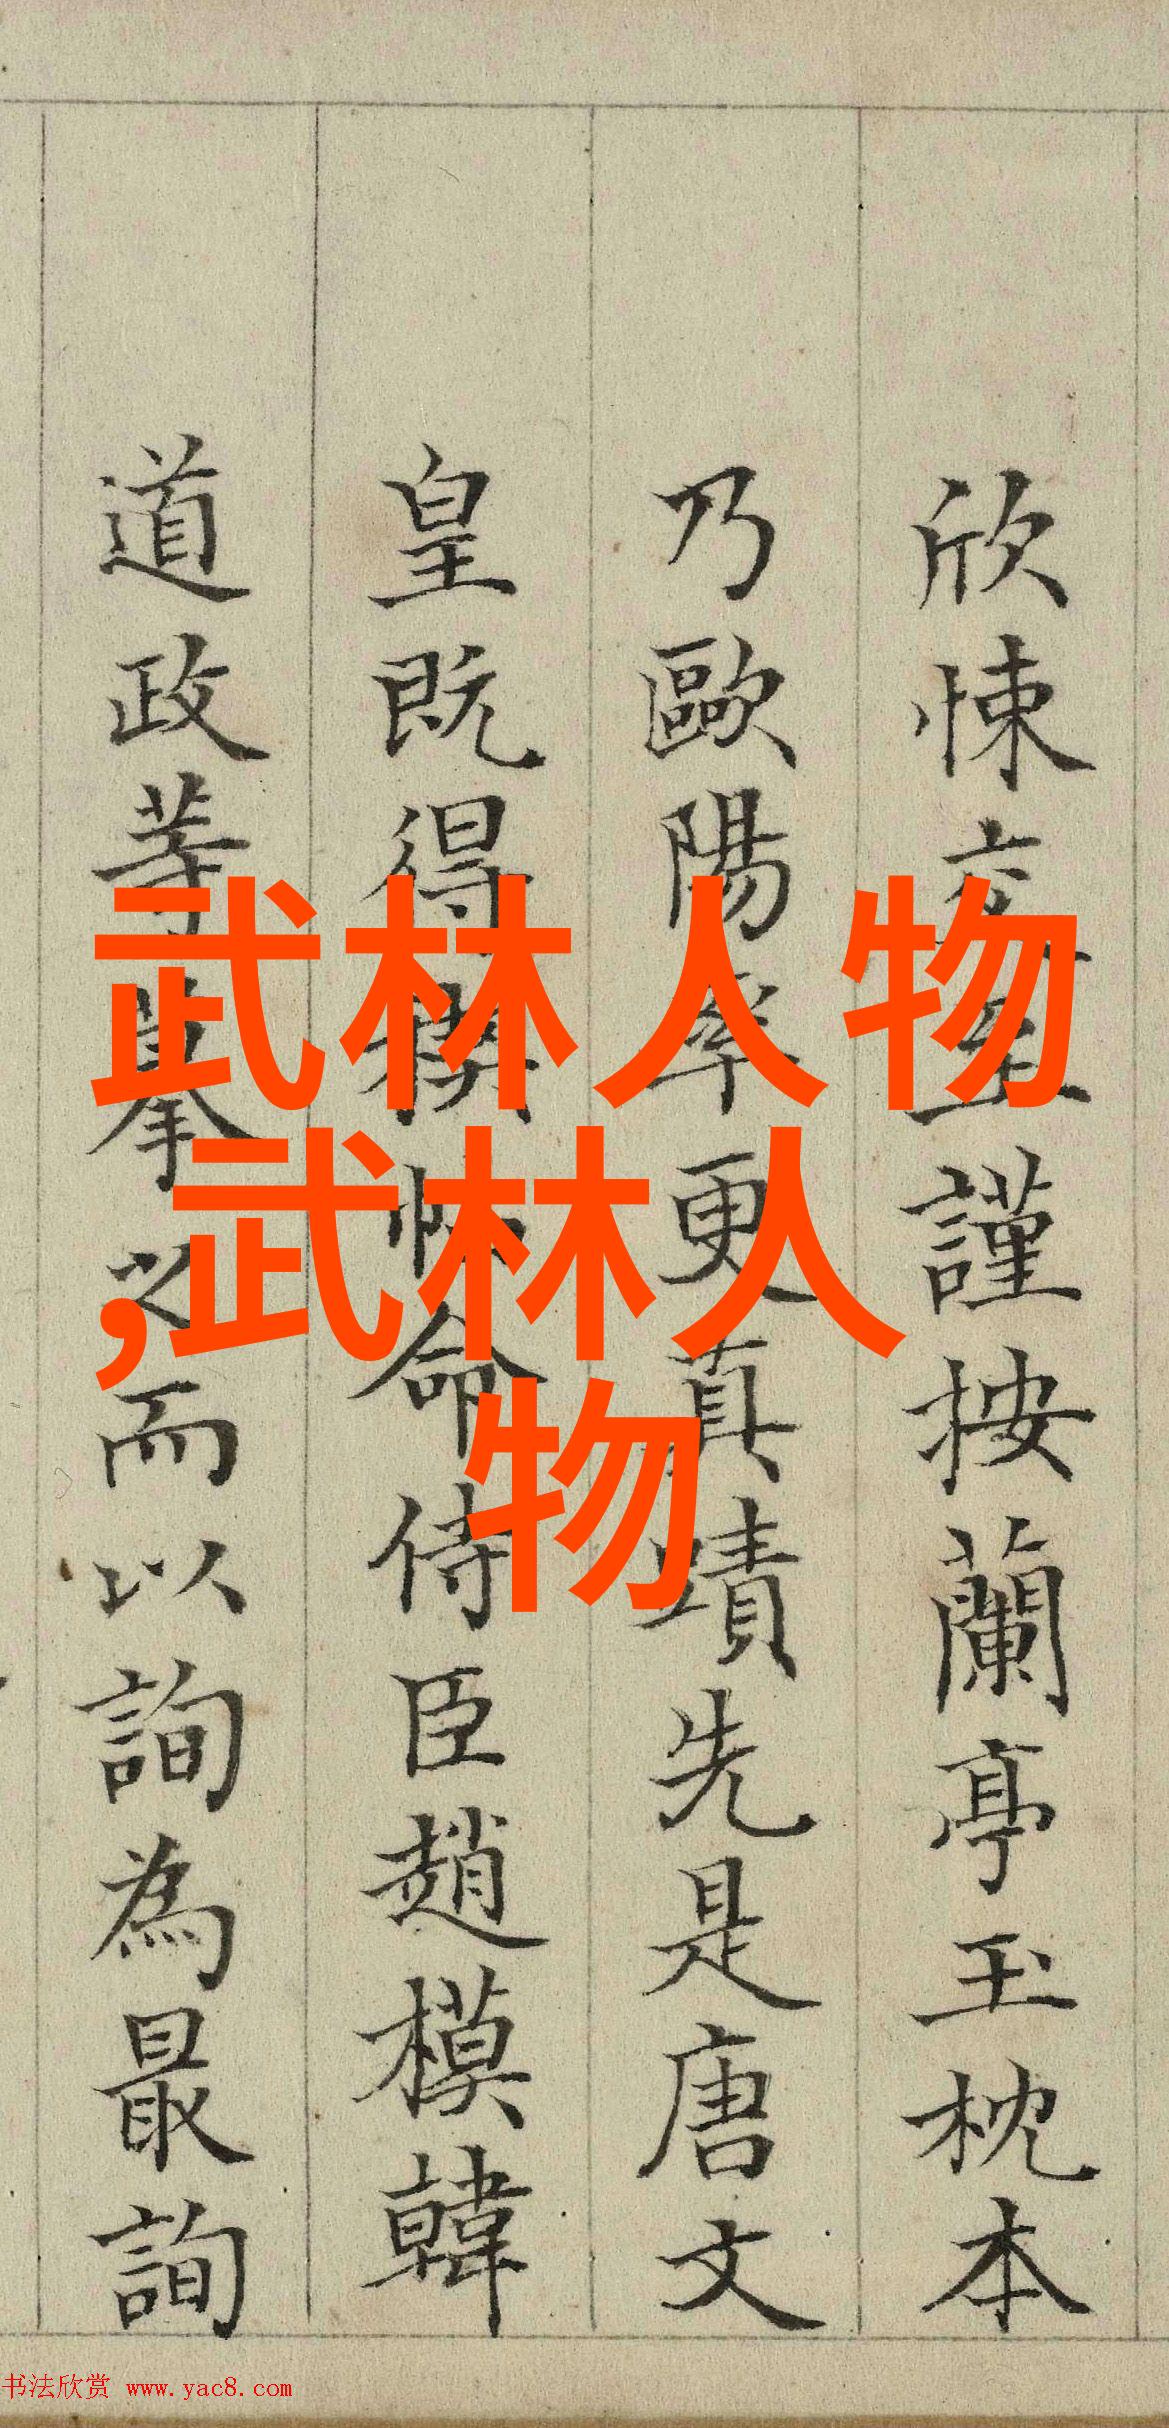 欣悚交至謹按蘭亭玉枕本
乃歐陽率更真蹟先是唐文
皇既得禊帖命侍臣趙模韓
道政等摹之而以詢為最詢
武林人物
,武林人
物
书法欣赏 www.yac8.com